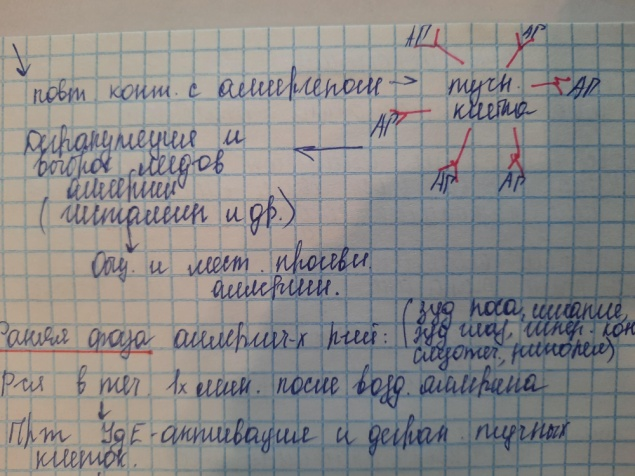 АГ АГ
повт. конт. с аллергеном → тучн. АГ
клетка
АГ
Дегрануляция и
выброс медов
аллергии
(гистамин и др.)
АГ АГ
Общ. и мест. проявл.
аллергии.
Ранняя фаза аллергич-х р-ий: (зуд носа, чихание,
зуд глаз, гипер. кон
слезотеч, ринорея)
Р-ся в теч. 1х мин. после возд. аллергена
IgE-активация и дегран. тучных
клеток.